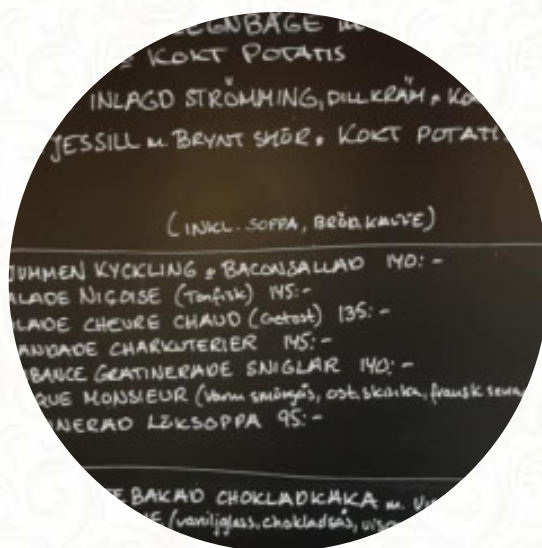 KOKT POTATIS
INLAGD STRÖMMING, DILLKRÄM
JESSILL M. BRYNT SMÖR, KOKT POTATI
(INKL. SOPPA, BRÖD, KAFFE)
JUMMEN KYCKLING & BACONSALLAD 140:-
LADE NICOISE (Tonfisk) 145:-
LADE CHEVRE CHAUD (Getost) 135:-
ANDADE CHARKUTERIER 145:-
GRATINERADE SNIGLAR 140:-
QUE MONSIEUR (Varm smörgås, ost, skinka, fransk
INERAD LÖKSOPPA 95:-
BAKAD CHOKLADKAKA m.
(vaniljglass, chokladsås,